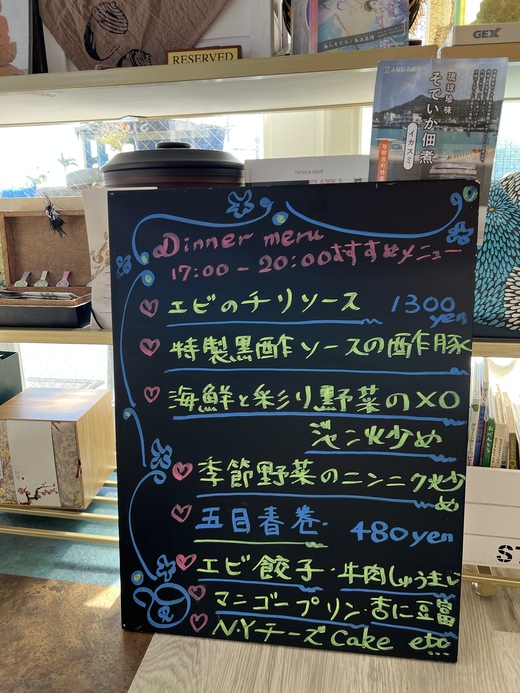 RESERVED
GEX
琉球珍味
そでいか佃煮
イカスミ
Dinner menu
17:00-20:00 おすすめメニュー
エビのチリソース 1300 yen
特製黒酢ソースの酢豚
海鮮と彩り野菜のXO
ジャン炒め
季節野菜のニンニク炒
め
五目春巻. 480yen
エビ餃子・牛肉しゅうまい
マンゴープリン・杏仁豆富
N.Yチーズ Cake etc...